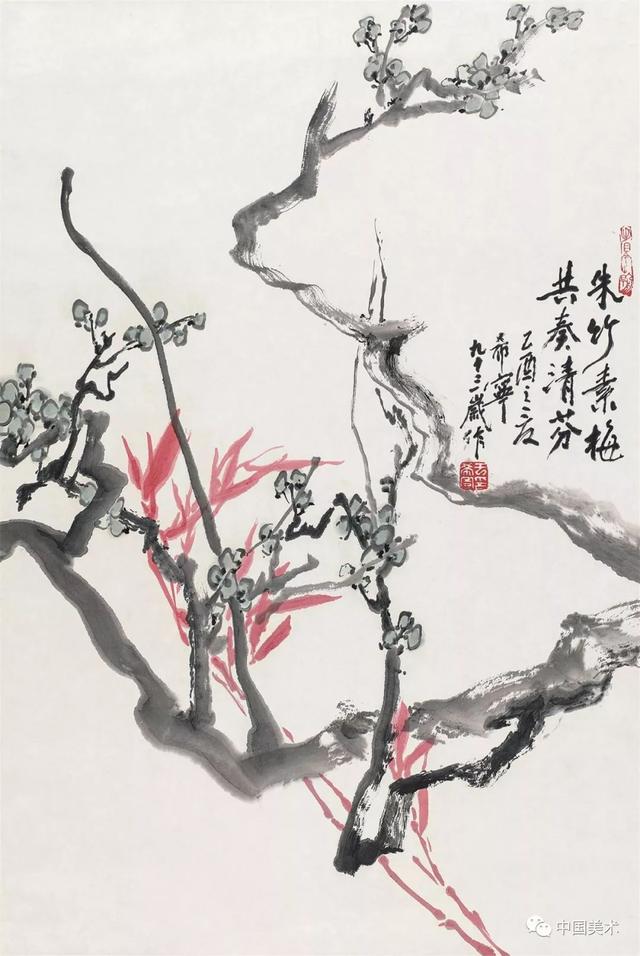 朱竹素梅
共奏清芬
乙酉之夏
希寧
九十三歲作
中国美术